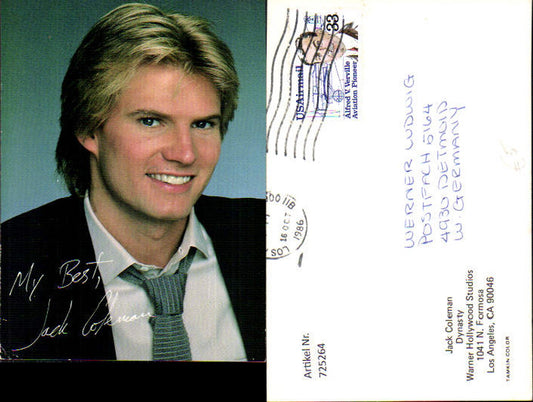 My Best,
Jack Coleman
USAirmail
33
Alfred V. Verville
Aviation Pioneer
16 OCT
1986
WERNER LUDWIG
POSTFACH 5164
4930 DETMOLD
W GERMANY
Jack Coleman
Dynasty
Warner Hollywood Studios
1041 N. Formosa
Los Angeles, CA 90046
TAMKIN COLOR
Artikel Nr.
725264